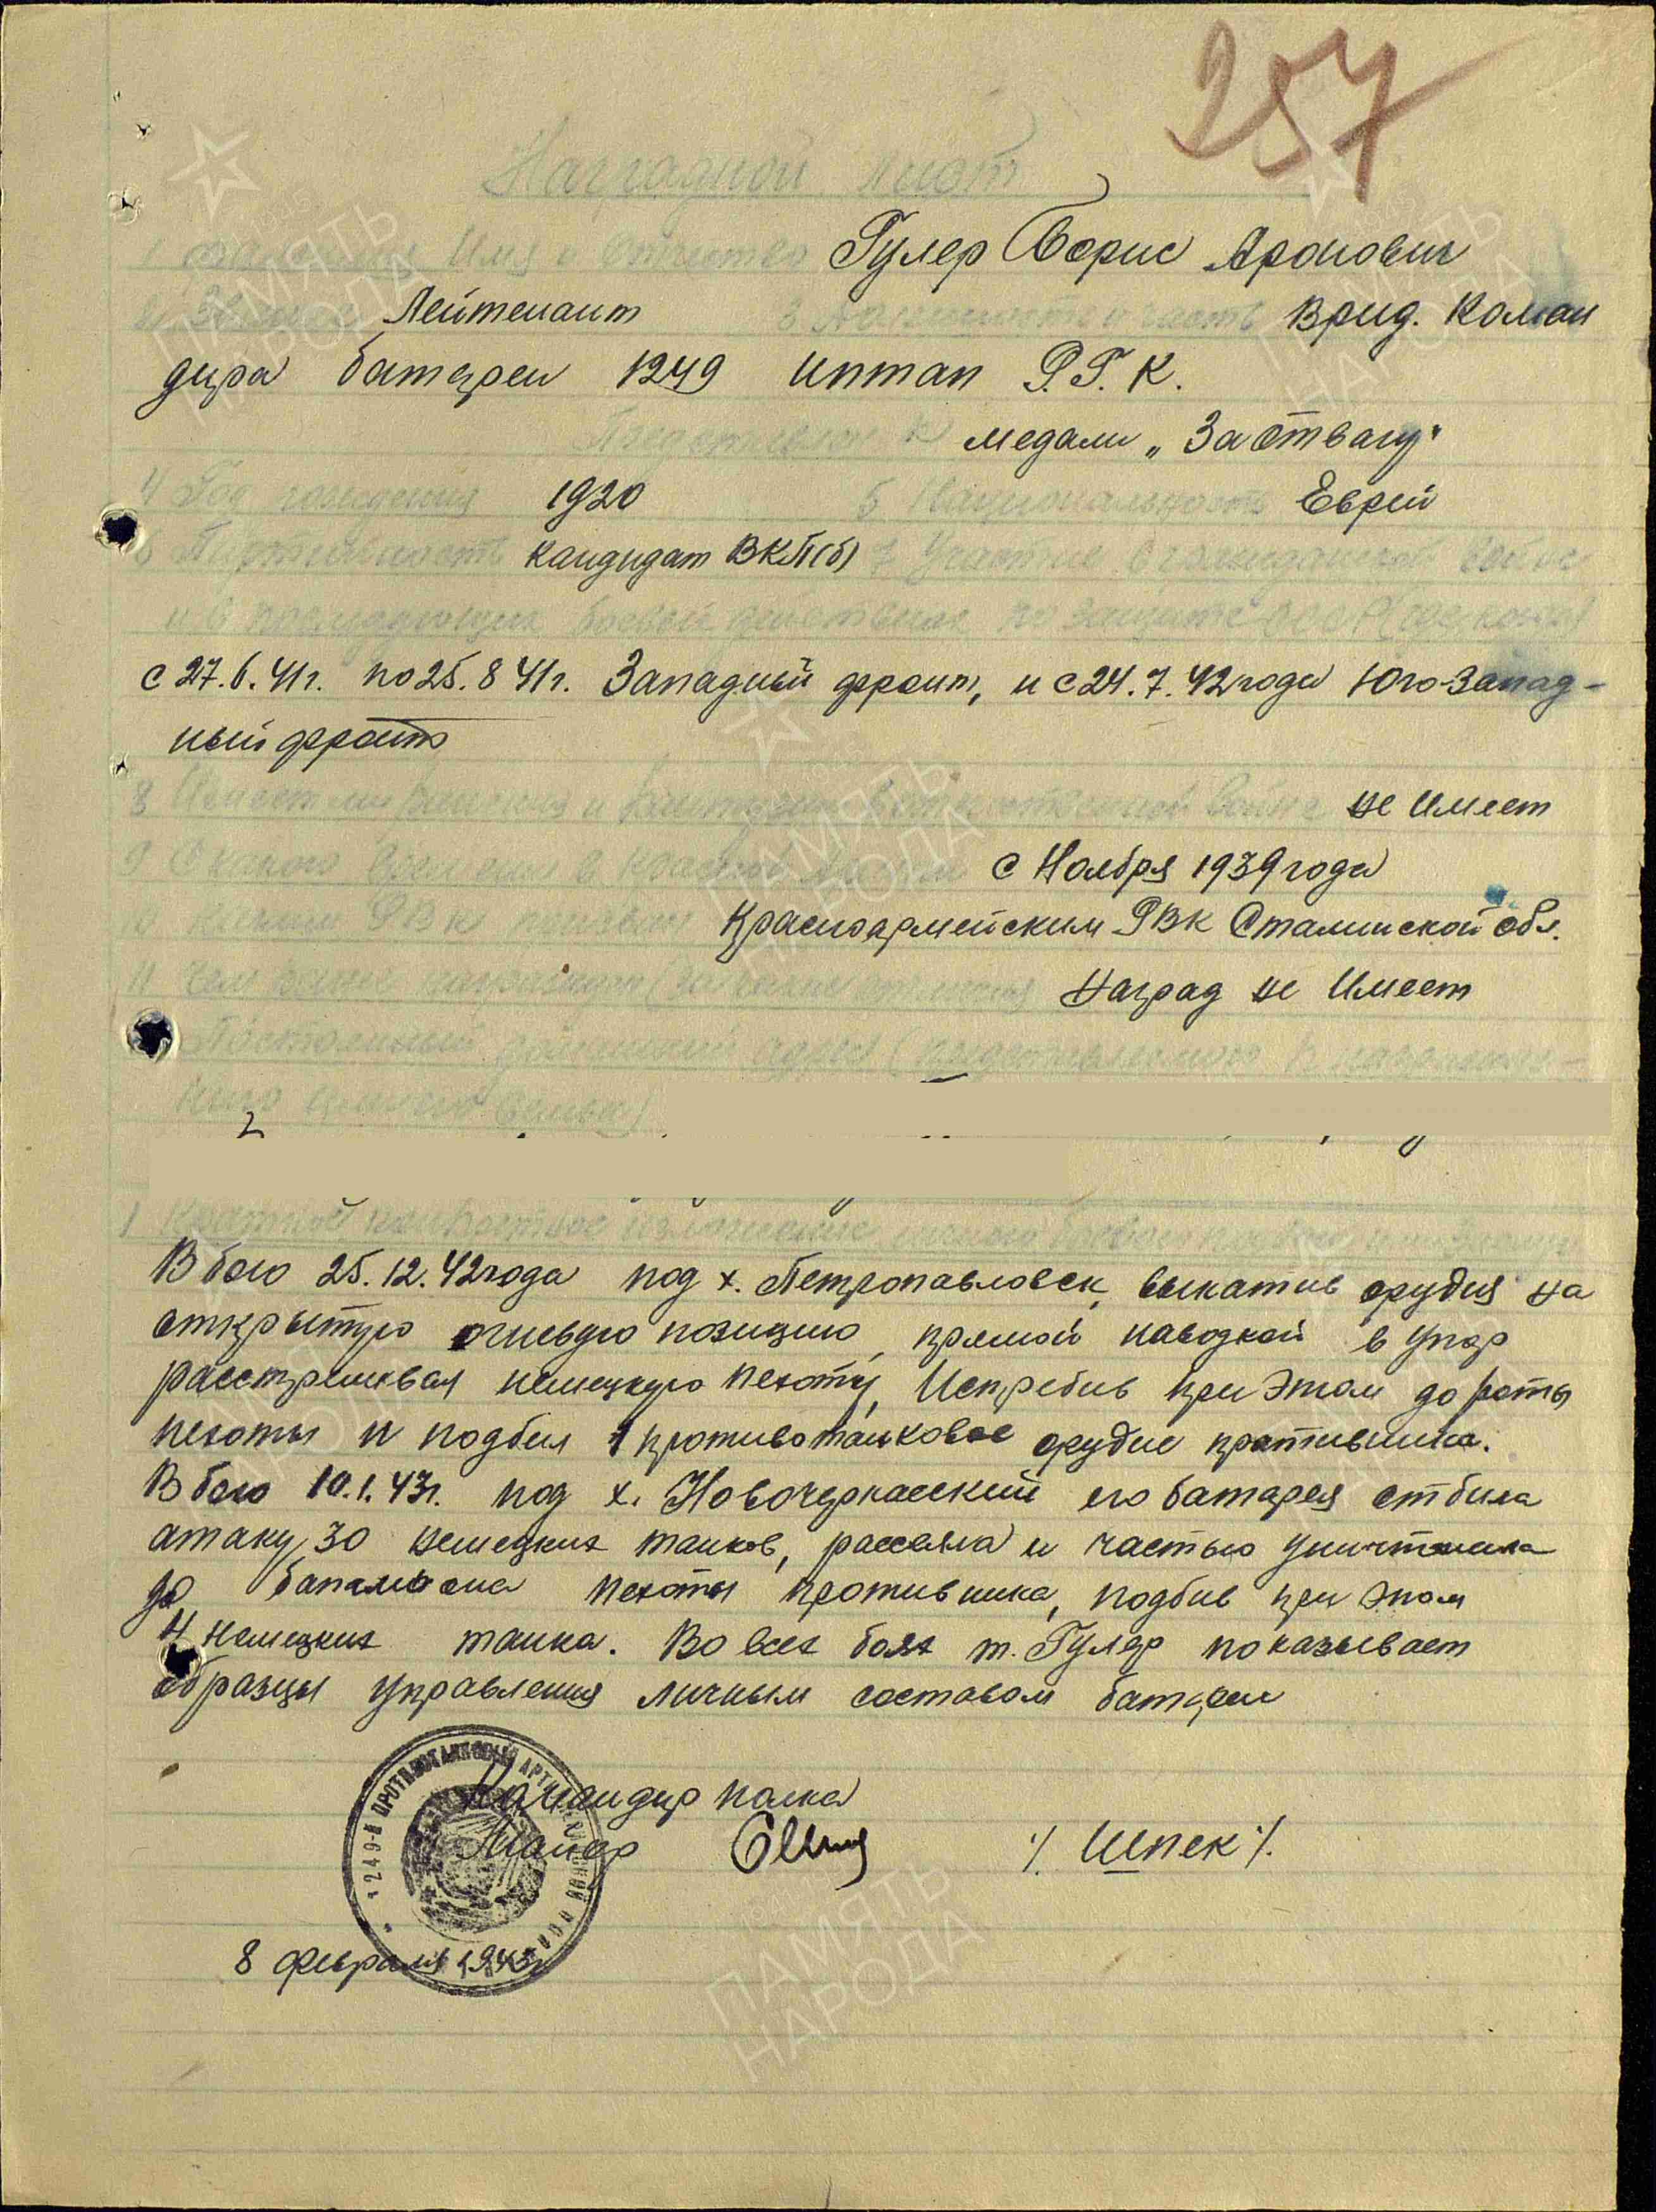 257
Наградной лист
1 Фамилия Имя и Отчество Гулер Борис Аронович
2 Звание Лейтенант 3 Должность и часть Врид. Коман
дира батареи 1249 иптап Р.Г.К.
Представлен к медали „За Отвагу"
4 Год рождения 1920 5 Национальность Еврей
6 Партийность кандидат ВКП(б) 7 Участие в гражданской войне
и в последующих боевой действиях по защите СССР (где, когда)
с 27.6.41г. по 25.8 41г. Западный фронт, и с 24.7.42 года Юго-Запад-
ный фронт
8 Имеет ли ранения и контузии в отечественной войне не имеет
9 С какого времени в Красной Армии с Ноября 1939 года
10 Каким РВК призван Красноармейским РВК Сталинской обл.
11 Чем ранее награжден (за какие отличия) Наград не Имеет
Постоянный домашний адрес (представляемого к награжден-
1 Краткое конкретное изложение личного боевого подвига
В бою 25.12.42 года под х. Петропавловск, выкатив орудия на
открытую огневую позицию, прямой наводкой в упор
расстреливал немецкую пехоту, Истребив при этом до роты
пехоты и подбил 1 противотанковое орудие противника.
В бою 10.1.43г. под х. Новочеркасский его батарея отбила
атаку 30 немецких танков, рассеяла и частью уничтожила
до батальона пехоты противника, подбив при этом
4 немецких танка. Во всех боях т. Гулер показывает
образцы управления личным составом батареи
Командир полка
Майор /Шпек/.
8 февраля 1943г
1249-Й ПРОТИВОТАНКОВЫЙ АРТИЛЛЕРИЙСКИЙ ПОЛК
ПАМЯТЬ
НАРОДА